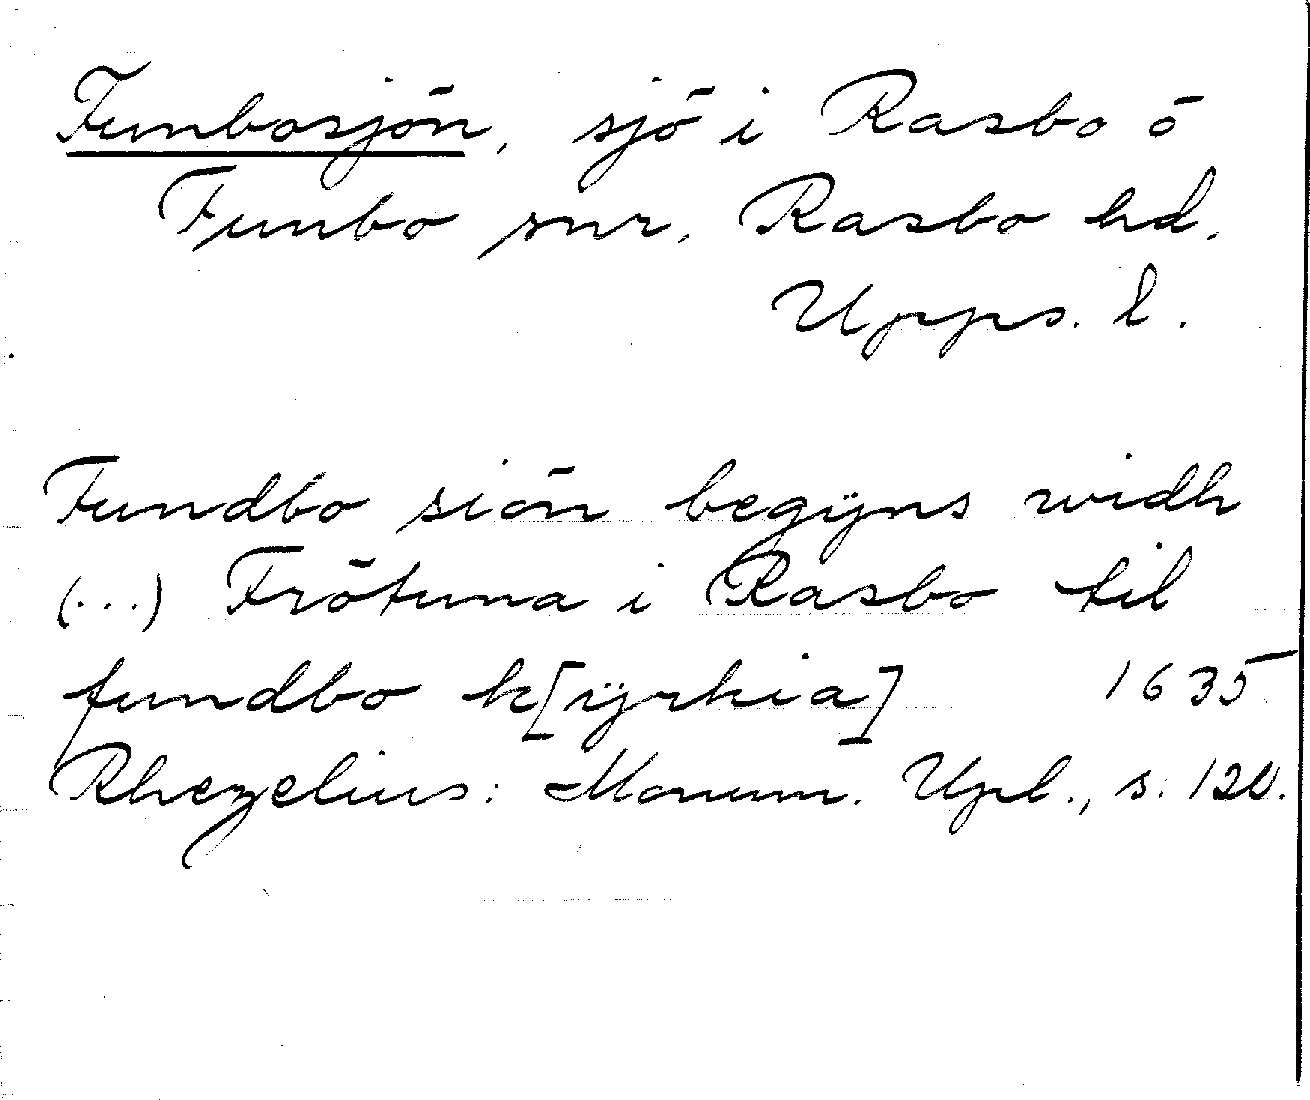 Funbosjön, sjö i Rasbo ö
Funbo snr, Rasbo hd.
Upps. l.
Fundbo siön begÿns widh
(...) Frötuna i Rasbo til
fundbo k[ÿrkia] 1635
Rhezelius: Monum. Upl., s.